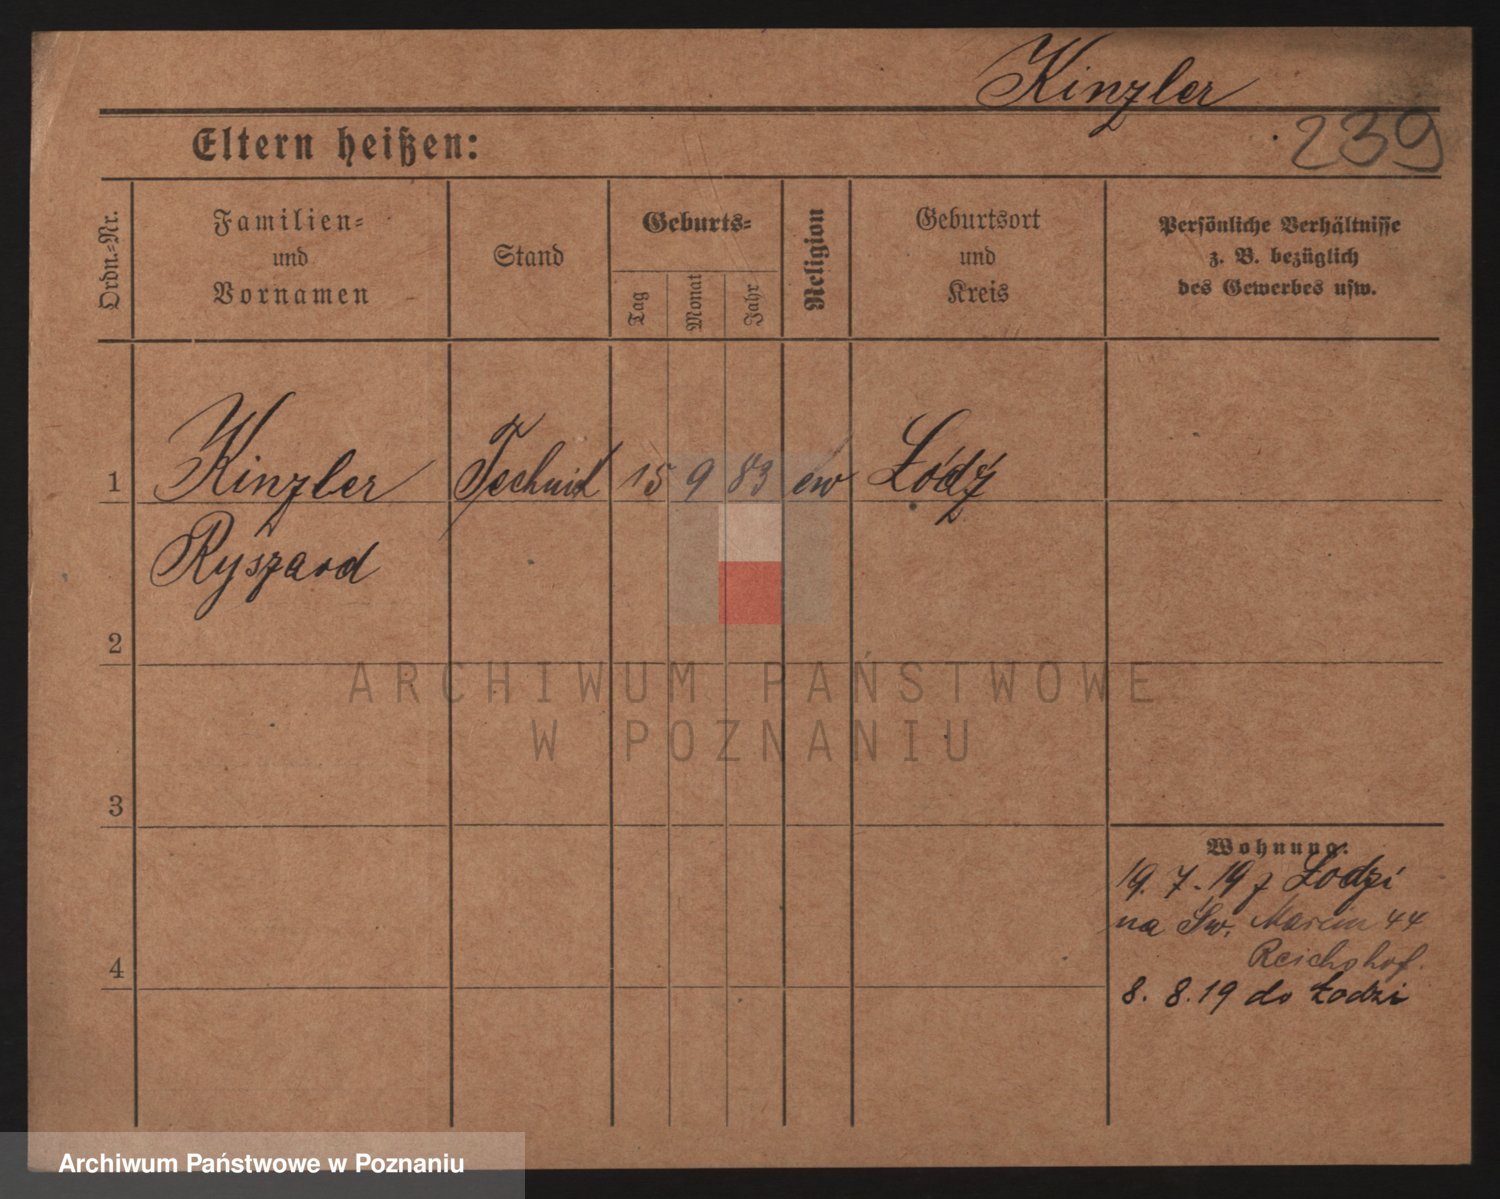 Kinzler
239
Eltern heißen:
Ordn.-Nr.
Familien-
und
Vornamen
Stand
Geburts-
Tag
Monat
Jahr
Religion
Geburtsort
und
Kreis
Persönliche Verhältnisse
z. B. bezüglich
des Gewerbes usw.
1 Kinzler Technik 15 9 83 ew Łódź
Ryszard
2
ARCHIWUM PAŃSTWOWE
W POZNANIU
3
Wohnung:
19. 7. 19 z Łodzi
na Św. Marcin 44
Reichshof.
4
8. 8. 19 do Łodzi
Archiwum Państwowe w Poznaniu